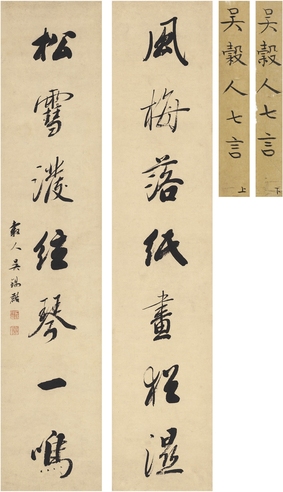 風梅落紙畫猶濕
松雪灑絃琴一鳴
穀人吳錫麒
吳穀人七言 下
吳穀人七言 上